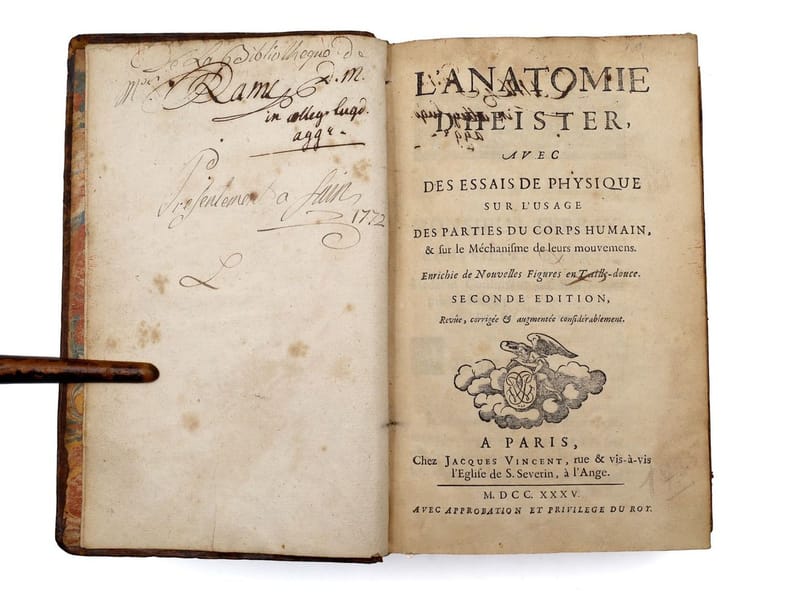 De La Bibliotheque de
Mre Rame D. m.
in colleg. lugd.
aggr.
Presentement a Jain
1772
L
L'ANATOMIE
D'HEISTER,
AVEC
DES ESSAIS DE PHYSIQUE
SUR L'USAGE
DES PARTIES DU CORPS HUMAIN,
& sur le Méchanisme de leurs mouvemens.
Enrichie de Nouvelles Figures en Taille-douce.
SECONDE EDITION,
Revûe, corrigée & augmentée considérablement.
A PARIS,
Chez JACQUES VINCENT, rue & vis-à-vis
l'Eglise de S. Severin, à l'Ange.
M. DCC. XXXV.
AVEC APPROBATION ET PRIVILEGE DU ROY.